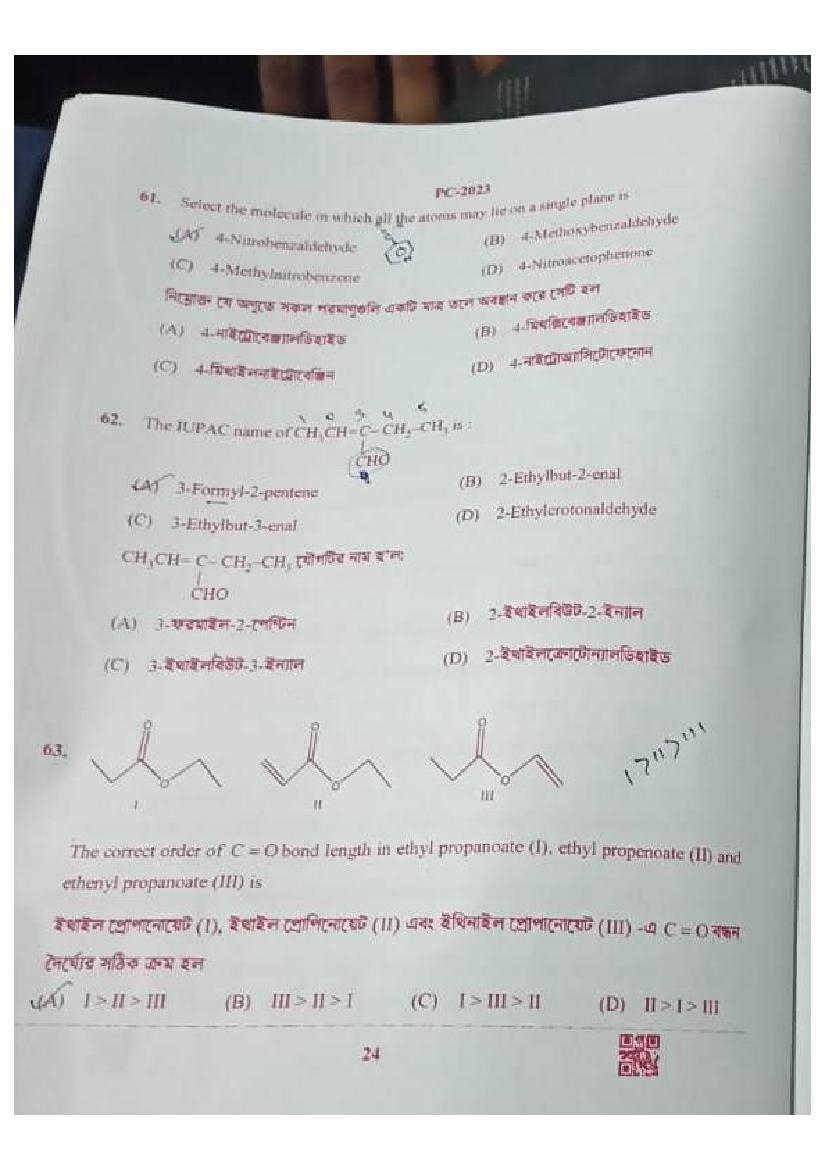 PC-2023
61. Select the molecule in which all the atoms may lie on a single plane is
(A) 4-Nitrobenzaldehyde (B) 4-Methoxybenzaldehyde
(C) 4-Methylnitrobenzene (D) 4-Nitroacetophenone
নিম্নোক্ত যে অণুতে সকল পরমাণুগুলি একটি মাত্র তলে অবস্থান করে সেটি হল
(A) 4-নাইট্রোবেঞ্জালডিহাইড (B) 4-মিথক্সিবেঞ্জালডিহাইড
(C) 4-মিথাইলনাইট্রোবেঞ্জিন (D) 4-নাইট্রোঅ্যাসিটোফেনোন
1 2 3 4 5
62. The IUPAC name of CH₃CH=C–CH₂–CH₃ is :
CHO
(A) 3-Formyl-2-pentene (B) 2-Ethylbut-2-enal
(C) 3-Ethylbut-3-enal (D) 2-Ethylcrotonaldehyde
CH₃CH= C– CH₂–CH₃ যৌগটির নাম হ'ল:
CHO
(A) 3-ফরমাইল-2-পেন্টিন (B) 2-ইথাইলবিউট-2-ইন্যাল
(C) 3-ইথাইলবিউট-3-ইন্যাল (D) 2-ইথাইলক্রোটোন্যালডিহাইড
63.
O O O
O O O
I II III
I>II>III
The correct order of C = O bond length in ethyl propanoate (I), ethyl propenoate (II) and
ethenyl propanoate (III) is
ইথাইল প্রোপানোয়েট (I), ইথাইল প্রোপিনোয়েট (II) এবং ইথিনাইল প্রোপানোয়েট (III) -এ C = O বন্ধন
দৈর্ঘ্যের সঠিক ক্রম হল
(A) I > II > III (B) III > II > I (C) I > III > II (D) II > I > III
24